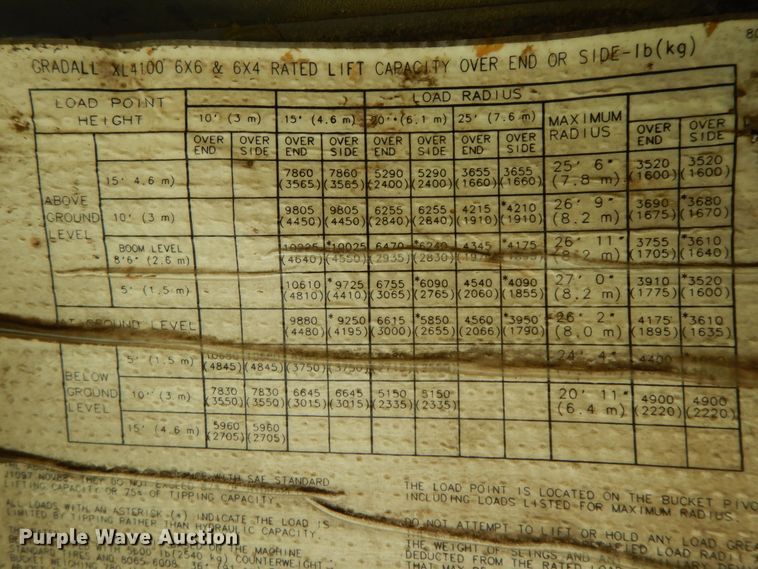 80
GRADALL XL4100 6X6 & 6X4 RATED LIFT CAPACITY OVER END OR SIDE-lb(kg)
LOAD POINT HEIGHT LOAD RADIUS
10' (3 m) 15' (4.6 m) 20' (6.1 m) 25' (7.6 m) MAXIMUM RADIUS
OVER END OVER SIDE OVER END OVER SIDE OVER END OVER SIDE OVER END OVER SIDE OVER END OVER SIDE
ABOVE GROUND LEVEL
15' 4.6 m) 7860 7860 5290 5290 3655 3655 25' 6" 3520 3520
(3565) (3565) (2400) (2400) (1660) (1660) (7.8 m) (1600) (1600)
10' (3 m) 9805 9805 6255 6255 4215 *4210 26' 9" 3690 *3680
(4450) (4450) (2840) (2840) (1910) (1910) (8.2 m) (1675) (1670)
BOOM LEVEL *10025 6470 *6240 4345 *4175 26' 11" 3755 *3610
8'6" (2.6 m) (4640) (4550) (2935) (2830) (8.2 m) (1705) (1640)
5' (1.5 m) 10610 *9725 6755 *6090 4540 *4090 27' 0" 3910 *3520
(4810) (4410) (3065) (2765) (2060) (1855) (8.2 m) (1775) (1600)
AT GROUND LEVEL 9880 *9250 6615 *5850 4560 *3950 26' 2" 4175 *3610
(4480) (4195) (3000) (2655) (2066) (1790) (8.0 m) (1895) (1635)
BELOW GROUND LEVEL
5' (1.5 m) 24' 4" 4400
(4845) (4845) (3750) (3750)
10' (3 m) 7830 7830 6645 6645 5150 5150 20' 11" 4900 4900
(3550) (3550) (3015) (3015) (2335) (2335) (6.4 m) (2220) (2220)
15' (4.6 m) 5960 5960
(2705) (2705)
WITH SAE STANDARD
THEY DO NOT EXCEED
LIFTING CAPACITY OR 75% OF TIPPING CAPACITY
ALL LOADS WITH AN ASTERISK (*) INDICATE THE LOAD IS
LIMITED BY TIPPING RATHER THAN HYDRAULIC CAPACITY.
ON THE MACHINE
WITH 5600 lb(2540 kg) COUNTERWEIGHT
STANDARD TIRES AND 8065-6008
BUCKET WEIGHING
THE LOAD POINT IS LOCATED ON THE BUCKET PIVO
INCLUDING LOADS LISTED FOR MAXIMUM RADIUS
DO NOT ATTEMPT TO LIFT OR HOLD ANY LOAD GREA
LOAD RADI
THE WEIGHT OF SLINGS AND
DEDUCTED FROM THE RATED
THAT MAY BE
Purple Wave Auction